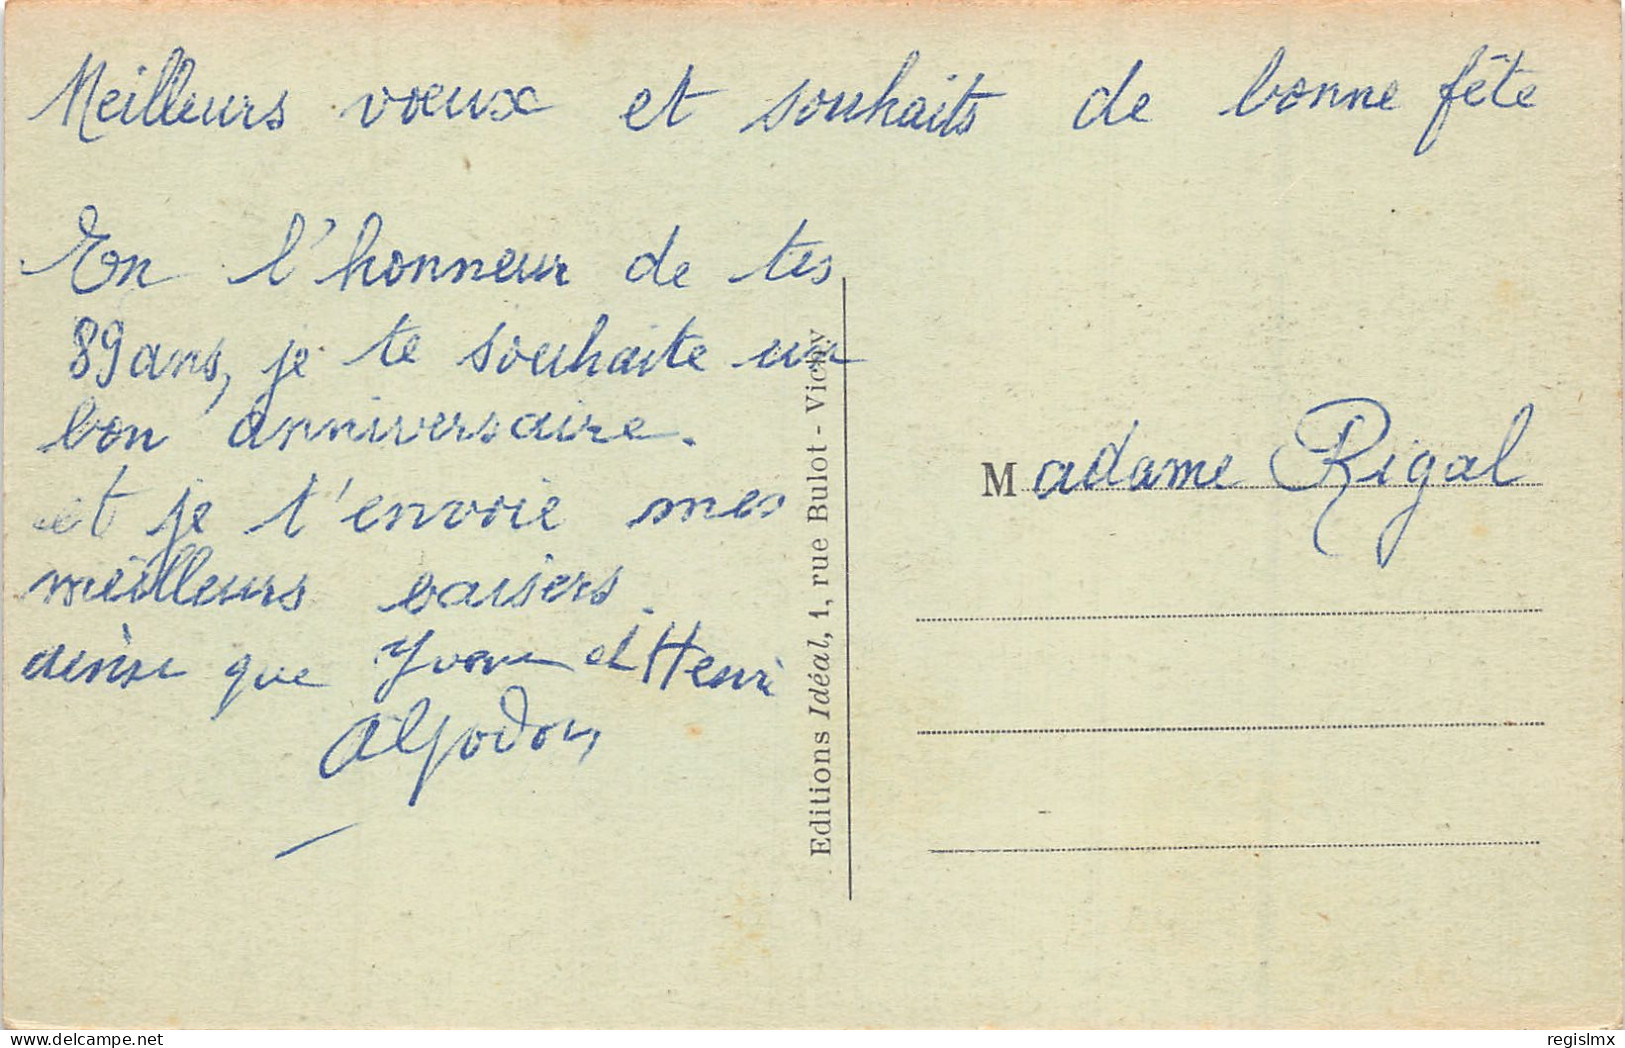 Meilleurs vœux et souhaits de bonne fête
En l'honneur de tes
89 ans, je te souhaite un
bon anniversaire.
et je t'envoie mes
meilleurs baisers.
ainsi que Yvonne et Henri
Algodon
Editions Idéal, 1, rue Bulot - Vichy
Madame Rigal
delcampe.net
regislmx